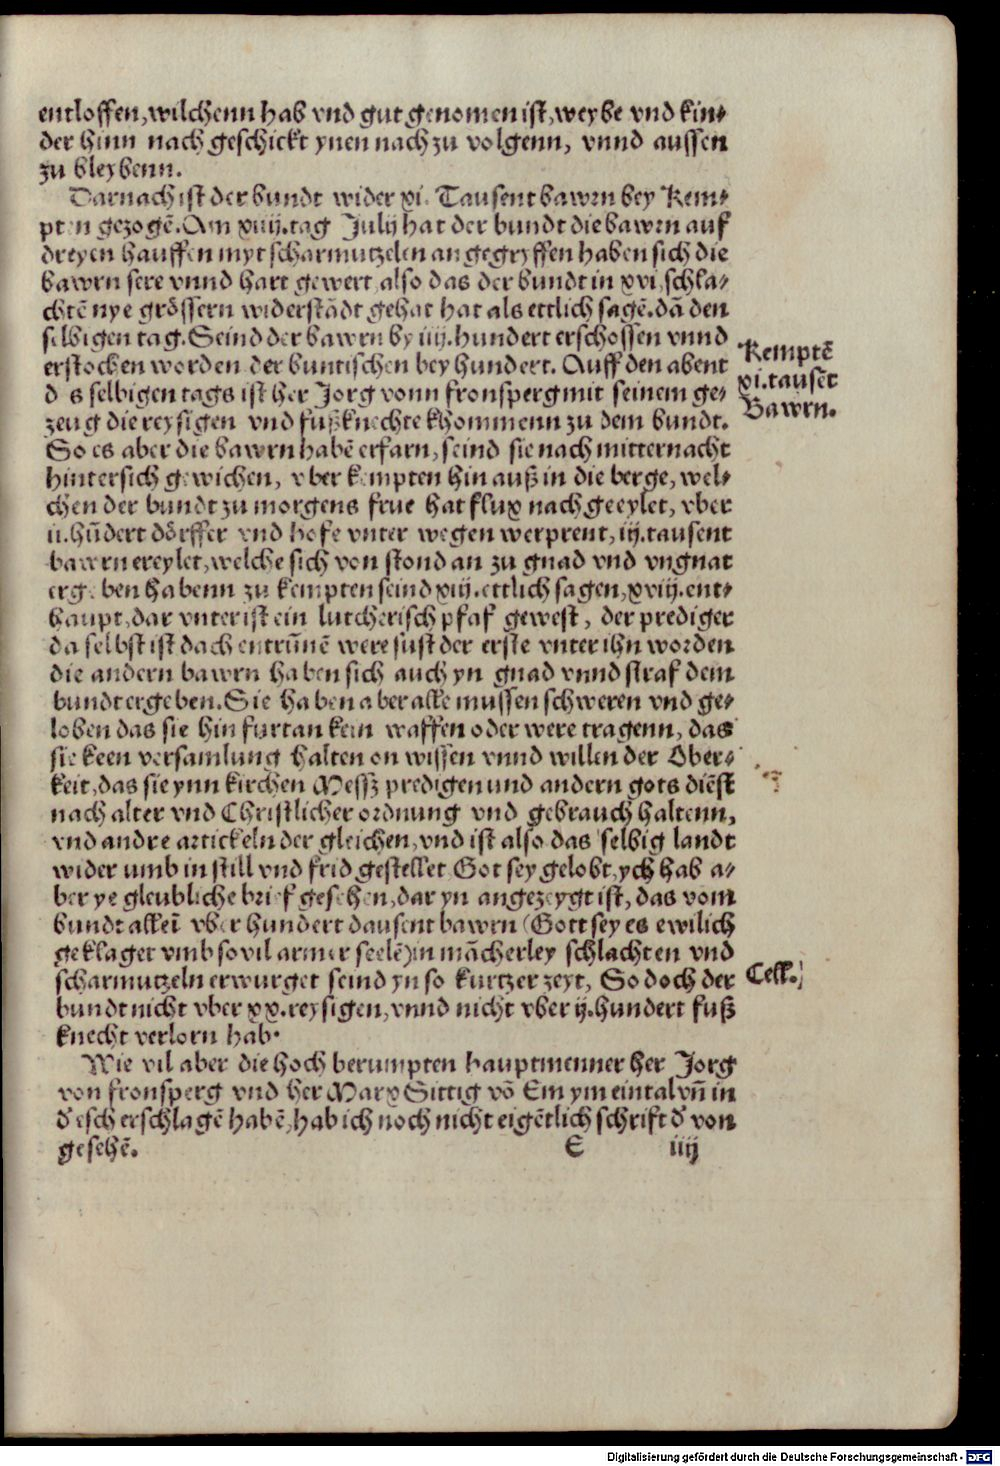 entloffen, wilchenn hab vnd gut genomen ist, weybe vnd kin⸗
der hinn nach geschickt ynen nach zu volgenn, vnnd aussen
zu bleybenn.
Darnach ist der bundt wider xi. Tausent bawrn bey Kem⸗
pten gezogē. Am xiiij. tag Julij hat der bundt die bawrn auf
dreyen hauffen myt scharmutzelen angegryffen haben sich die
bawrn sere vnnd hart gewert also das der bundt in xvi, schla⸗
chtē nye grössern widerstādt gehat hat als ettlich sagē. dā den
selbigen tag. Seind der bawrn by iiij. hundert erschossen vnnd
erstochen worden der buntischen bey hundert. Auff den abent
des selbigen tags ist her Jorg vonn fronsperg mit seinem ge⸗
zeug die reysigen vnd fußknechte khommenn zu dem bundt.
So es aber die bawrn habē erfarn, seind sie nach mitternacht
hintersich gewichen, vber kempten hin auß in die berge, wel⸗
chen der bundt zu morgens frue hat flux nach geeylet, vber
ii. hūdert dörffer vnd hofe vnter wegen werprent, iij. tausent
bawrn ereylet, welche sich von stond an zu gnad vnd vngnat
ergeben habenn zu kempten seind xiij. ettlich sagen, xviij. ent⸗
haupt, dar vnter ist ein lutcherisch pfaf gewest, der prediger
da selbst ist dach entrūnē were sust der erste vnter ihn worden
die andern bawrn haben sich auch yn gnad vnnd straf dem
bundt ergeben. Sie haben aber alle mussen schweren vnd ge⸗
loben das sie hin furtan kein waffen oder were tragenn, das
sie keen versamlung halten on wissen vnnd willen der Ober⸗
keit, das sie ynn kirchen Messz predigen und andern gots diēst
nach alter vnd Christlicher ordnung vnd gebrauch haltenn,
vnd andre artickeln der gleichen, vnd ist also das selbig landt
wider umb in still vnd frid gestellet Got sey gelobt, ych hab a⸗
ber ye gleubliche brief gesehen, dar yn angezeygt ist, das vom
bundt alleī vber hundert dausent bawrn (Gott sey es ewilich
geklaget vmb so vil armer seelē) in mācherley schlachten vnd
scharmutzeln erwurget seind yn so kurtzer zeyt, So doch der
bundt nicht vber xx. reysigen, vnnd nicht vber ij. hundert fuß
knecht verlorn hab.
Wie vil aber die hoch berumpten hauptmenner her Jorg
von fronsperg vnd her Marx Sittig vō Em ym eintal vn̄ in
erschlagē habē, hab ich noch nicht eigētlich schrift d̓ von
gesehē.
E iiij
Kemptē
xi. tausēt
Bawrn.
Cell.
Digitalisierung gefördert durch die Deutsche Forschungsgemeinschaft - DFG